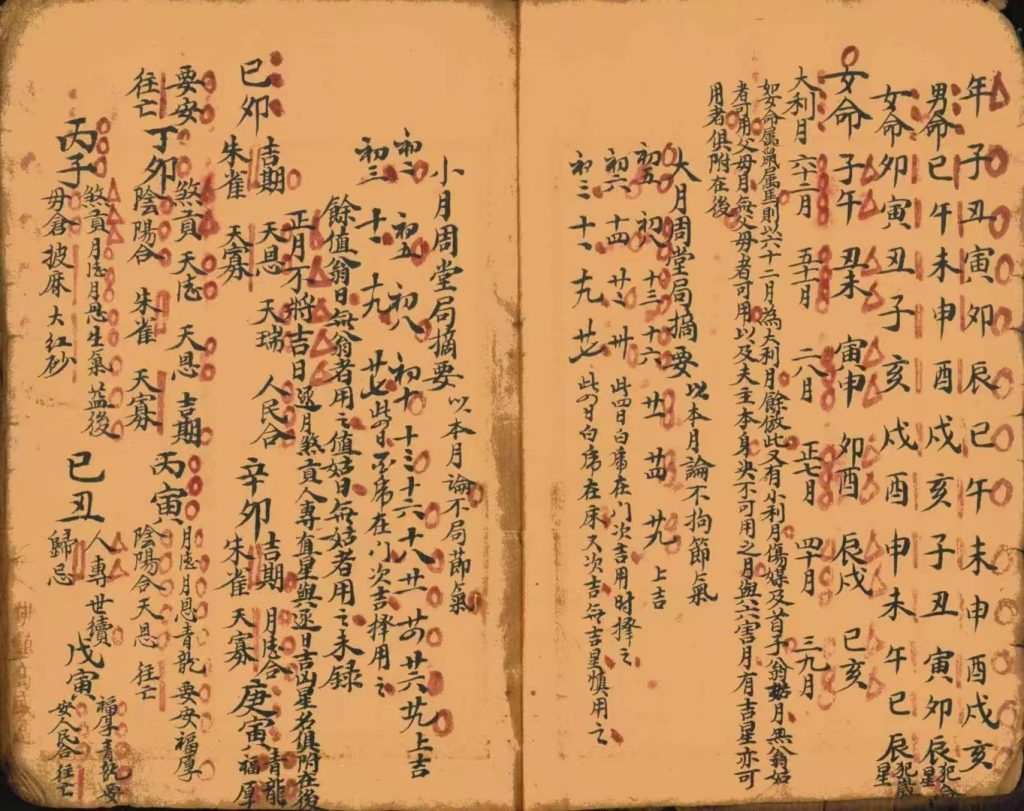 年 子丑寅卯辰巳午未申酉戌亥
男命巳午未申酉戌亥子丑寅卯辰 犯命星
女命卯寅丑子亥戌酉申未午巳辰 犯歲星
女命 子午 丑未 寅申 卯酉 辰戌 巳亥
大利月 六十二月 五十一月 二八月 正七月 四十月 三九月
如女命属鼠属馬則以六十二月為大利月餘倣此又有小利月傷媒及首子翁姑月無翁姑
者可用父母月無父母者可用以及夫主本身决不可用之月與六害月有吉星亦可
用者俱附在後
大月周堂局摘要 以本月論不拘節氣
初五 初八 十三 十六 廿一 廿四 廿九 上吉
初六 十四 廿二 卅 此四日白席在门次吉用时擇之
初三 十一 十九 廿七 此四日白席在床又次吉無吉星慎用之
小月周堂局摘要 以本月論不局節氣
初二 初五 初八 初十 十三 十六 十八 廿一 廿四 廿六 廿九 上吉
初三 十一 十九 廿七 此四日白席在门次吉擇用之
餘值翁日無翁者用之值姑日無姑者用之未録
正月丁將吉日逐月煞貢人專直星與逐日吉凶星名俱附在後
己卯 吉期 天恩 天瑞 人民合
朱雀 天寡
辛卯 吉期 月德合
朱雀 天寡
庚寅 青龍
福厚
要安
往亡
丁卯 煞貢 天德 天恩 吉期
陰陽合 朱雀 天寡
丙寅 月德月恩青龍 要安福厚
陰陽合天恩 往亡
丙子 煞貢月德月恩生氣益後
毋倉披麻 大紅砂
己丑 人專世續
歸忌
戊寅 福厚青龍要
安人民合往亡